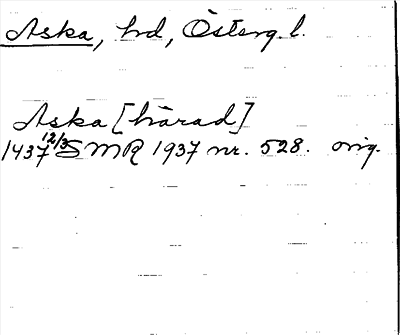 Aska, hd, Österg. l.
Aska [härad]
1437 12/3 SMR 1937 nr. 528. orig.